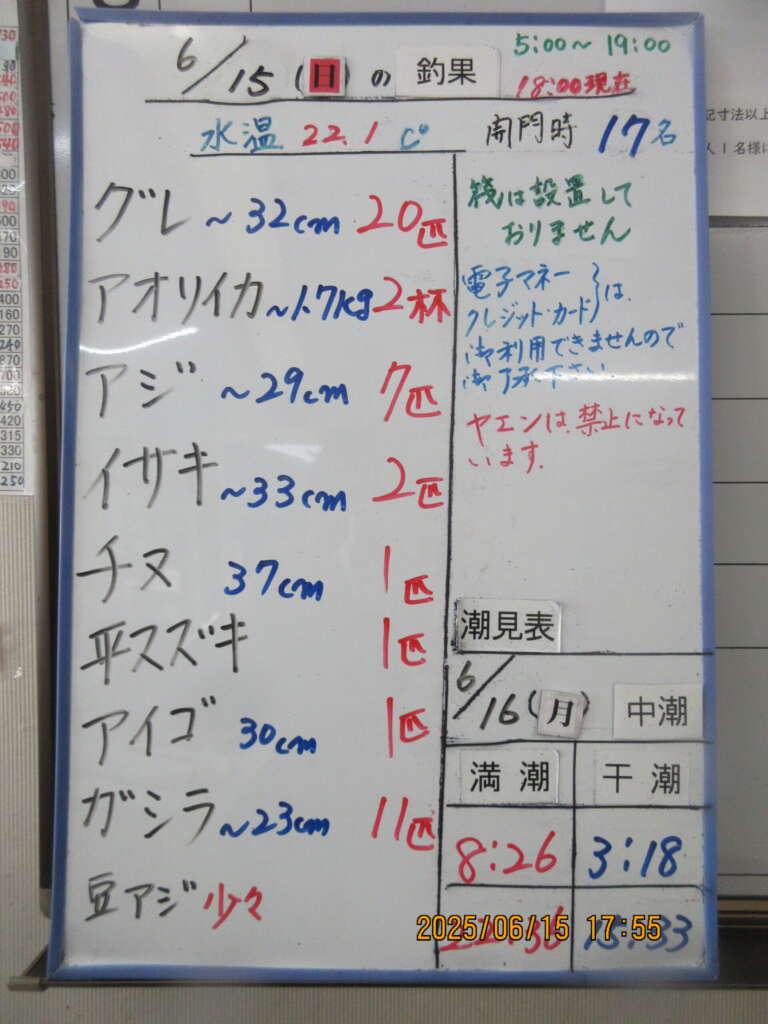 6/15(日)の 釣果
5:00~19:00
18:00現在
水温 22.1 C°
開門時 17名
グレ ~32cm 20匹
アオリイカ ~1.7kg 2杯
アジ ~29cm 7匹
イサキ ~33cm 2匹
チヌ 37cm 1匹
平スズキ 1匹
アイゴ 30cm 1匹
ガシラ ~23cm 11匹
豆アジ 少々
筏は設置して
おりません
電子マネー
クレジット・カード}は、
御利用できませんので
御了承下さい
ヤエンは、禁止になって
います。
潮見表
6/16(月) 中潮
満潮 干潮
8:26 3:18
2025/06/15 17:55